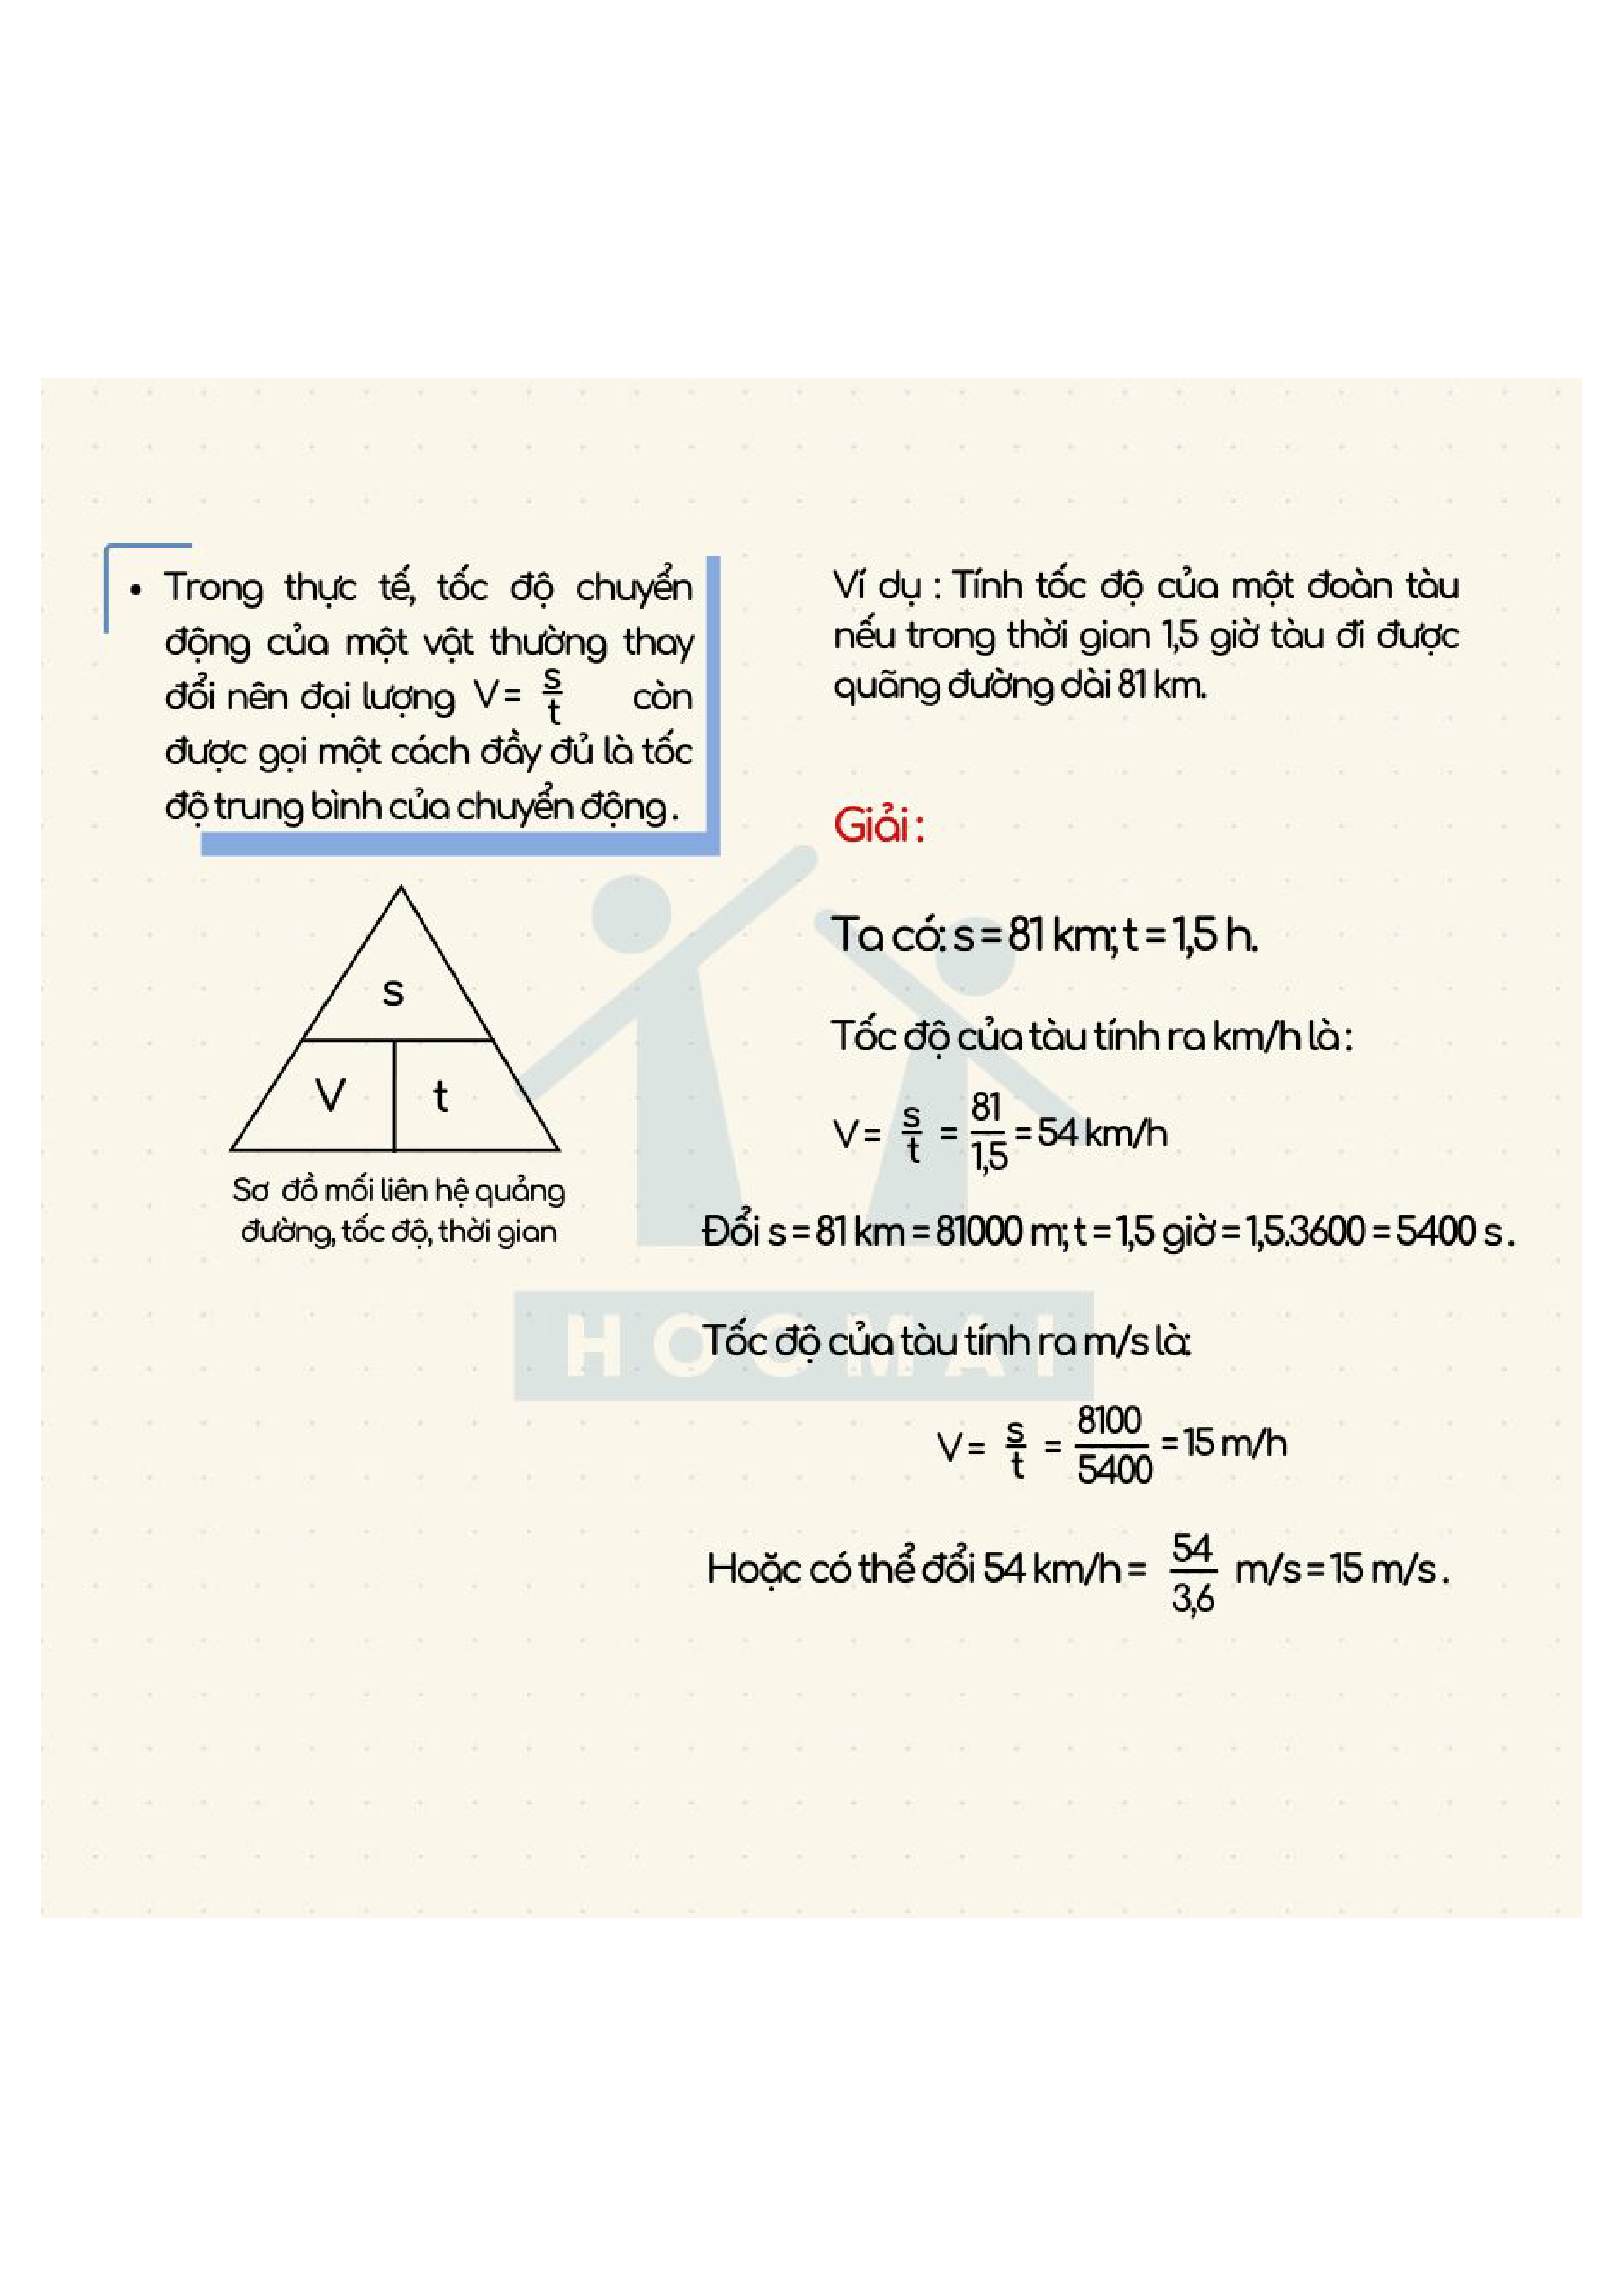 • Trong thực tế, tốc độ chuyển
động của một vật thường thay
đổi nên đại lượng V = s/t còn
được gọi một cách đầy đủ là tốc
độ trung bình của chuyển động.
s
V t
Sơ đồ mối liên hệ quảng
đường, tốc độ, thời gian
Ví dụ : Tính tốc độ của một đoàn tàu
nếu trong thời gian 1,5 giờ tàu đi được
quãng đường dài 81 km.
Giải :
Ta có: s = 81 km; t = 1,5 h.
Tốc độ của tàu tính ra km/h là :
V = s/t = 81/1,5 = 54 km/h
Đổi s = 81 km = 81000 m; t = 1,5 giờ = 1,5.3600 = 5400 s .
Tốc độ của tàu tính ra m/s là:
V = s/t = 8100/5400 = 15 m/h
Hoặc có thể đổi 54 km/h = 54/3,6 m/s = 15 m/s .
HOCMAI